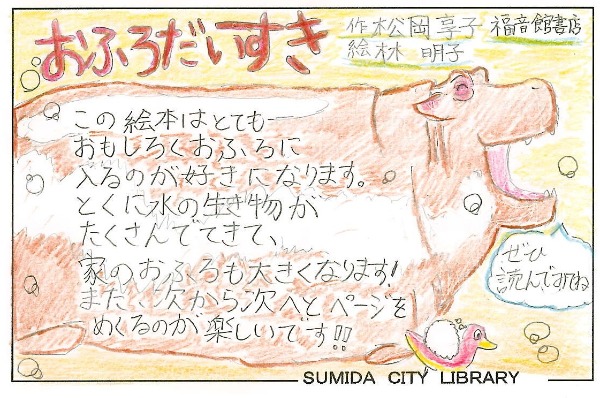 おふろだいすき
作 松岡享子 福音館書店
絵 林 明子
この絵本はとても
おもしろくおふろに
入るのが好きになります。
とくに水の生き物が
たくさんでてきて、
家のおふろも大きくなります!
また、次から次へとページを
めくるのが楽しいです!!
ぜひ
読んですね
SUMIDA CITY LIBRARY